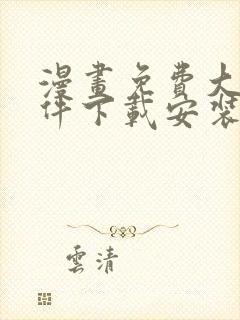 漫畫免費大
件下載安裝
雲清